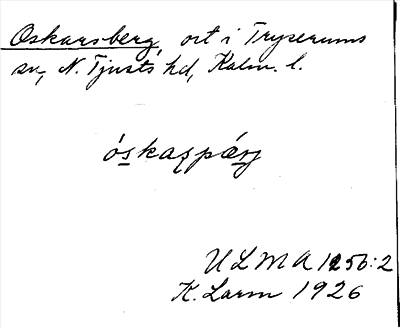 Oskarsberg, ort i Tryserums
sn, N. Tjusts hd, Kalm. l.
óskaspærj
ULMA 1256:2
K. Larm 1926